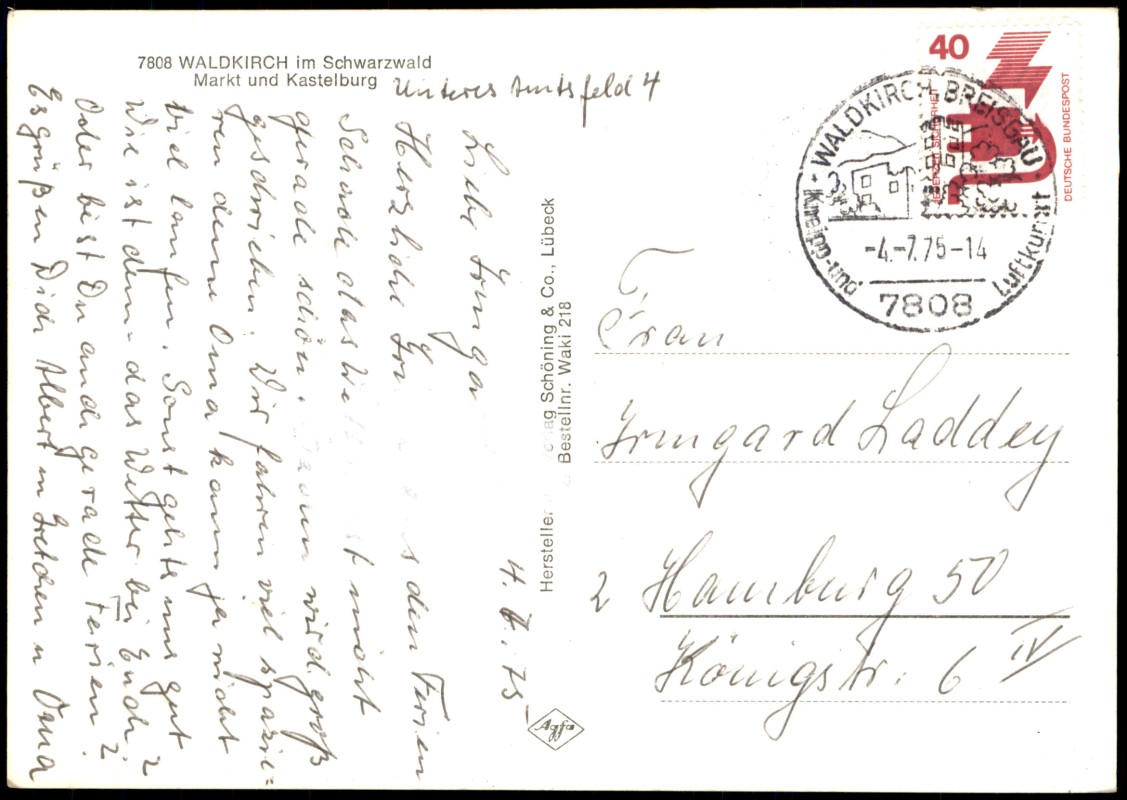 7808 WALDKIRCH im Schwarzwald
Markt und Kastelburg
Unteres Amtsfeld 4
4. 7. 75
Liebe Irmga
Herzliche Grü s den Ferien
Schade das We t nicht
gerade schön. wird groß
geschrieben. Wir fahren viel spazie=
ren denn Oma kann ja nicht
viel laufen. Sonst gehts uns gut
Wie ist denn das Wetter bei Euch?
Oder bist Du auch gerade Ferien?
Es grüßen Dich Albert u Gretchen u Oma
Hersteller ag Schöning & Co., Lübeck
Bestellnr. Waki 218
Agfa
40
JEDERZEIT SICHERHEIT
DEUTSCHE BUNDESPOST
WALDKIRCH BREISGAU
Kneipp-und Luftkurort
-4.-7.75-14
7808
Frau
Irmgard Laddey
2 Hamburg 50
Königstr. 6 IV